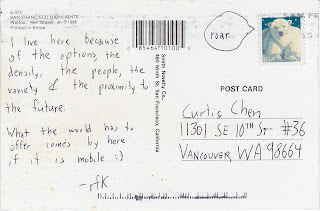 SAN FRANCISCO HIGHLIGHTS
Printed in Korea
I live here because
of the options, the
density, the people, the
variety & the proximity to
the future.
What the world has to
offer comes by here
if it is mobile :)
-rfK
Smith Novelty Co.
460 Ninth St. San Francisco, California
roar.
USA
POST CARD
Curtis Chen
11301 SE 10TH ST #36
VANCOUVER, WA 98664